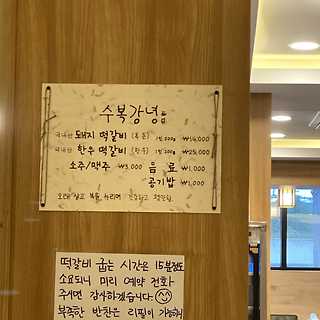 수복강녕
국내산 돼지 떡갈비 (목돈) 1인 200g ₩14,000
국내산 한우 떡갈비 1인 200g ₩25,000
소주/맥주 ₩3,000 음료 ₩1,000
공기밥 ₩1,000
오래 살고 복을 누리며 건강하고 평안함
떡갈비 굽는 시간은 15분정도
소요되니 미리 예약 전화
주시면 감사하겠습니다
부족한 반찬은 리필이 가능하